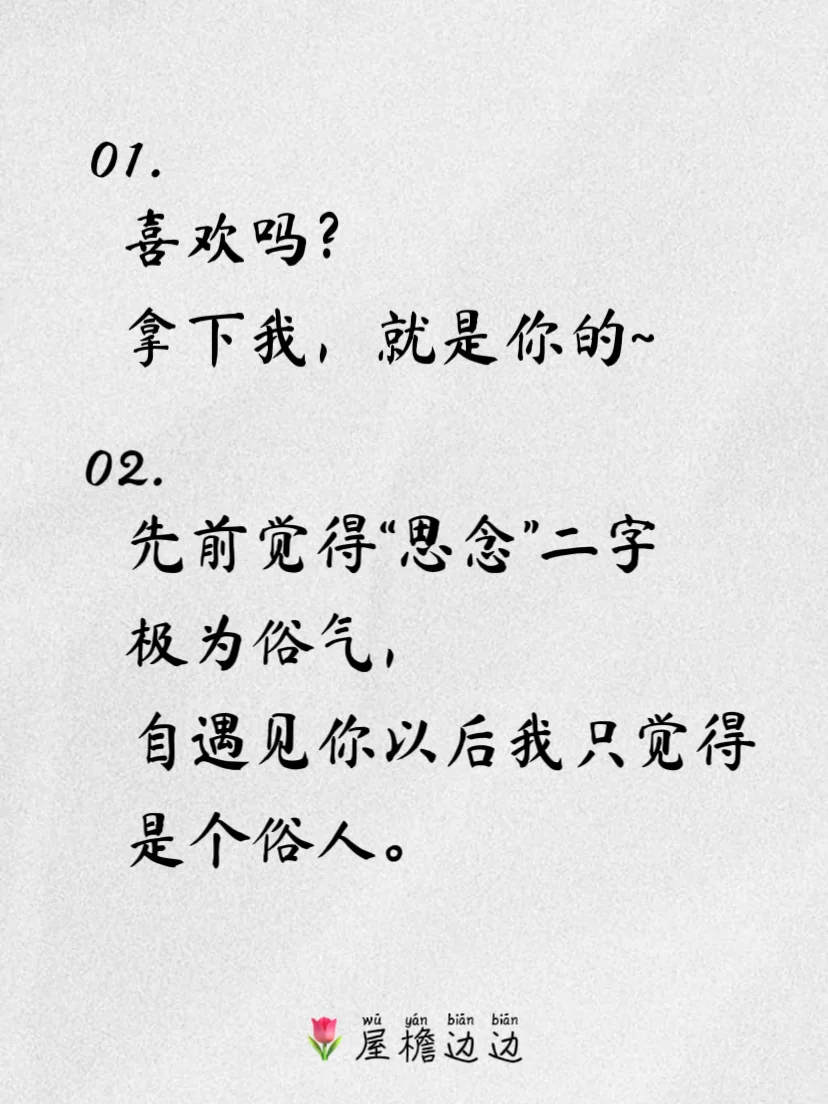 01.
喜欢吗？
拿下我，就是你的~
02.
先前觉得“思念”二字
极为俗气，
自遇见你以后我只觉得
是个俗人。
wū yán biān biān
屋檐边边